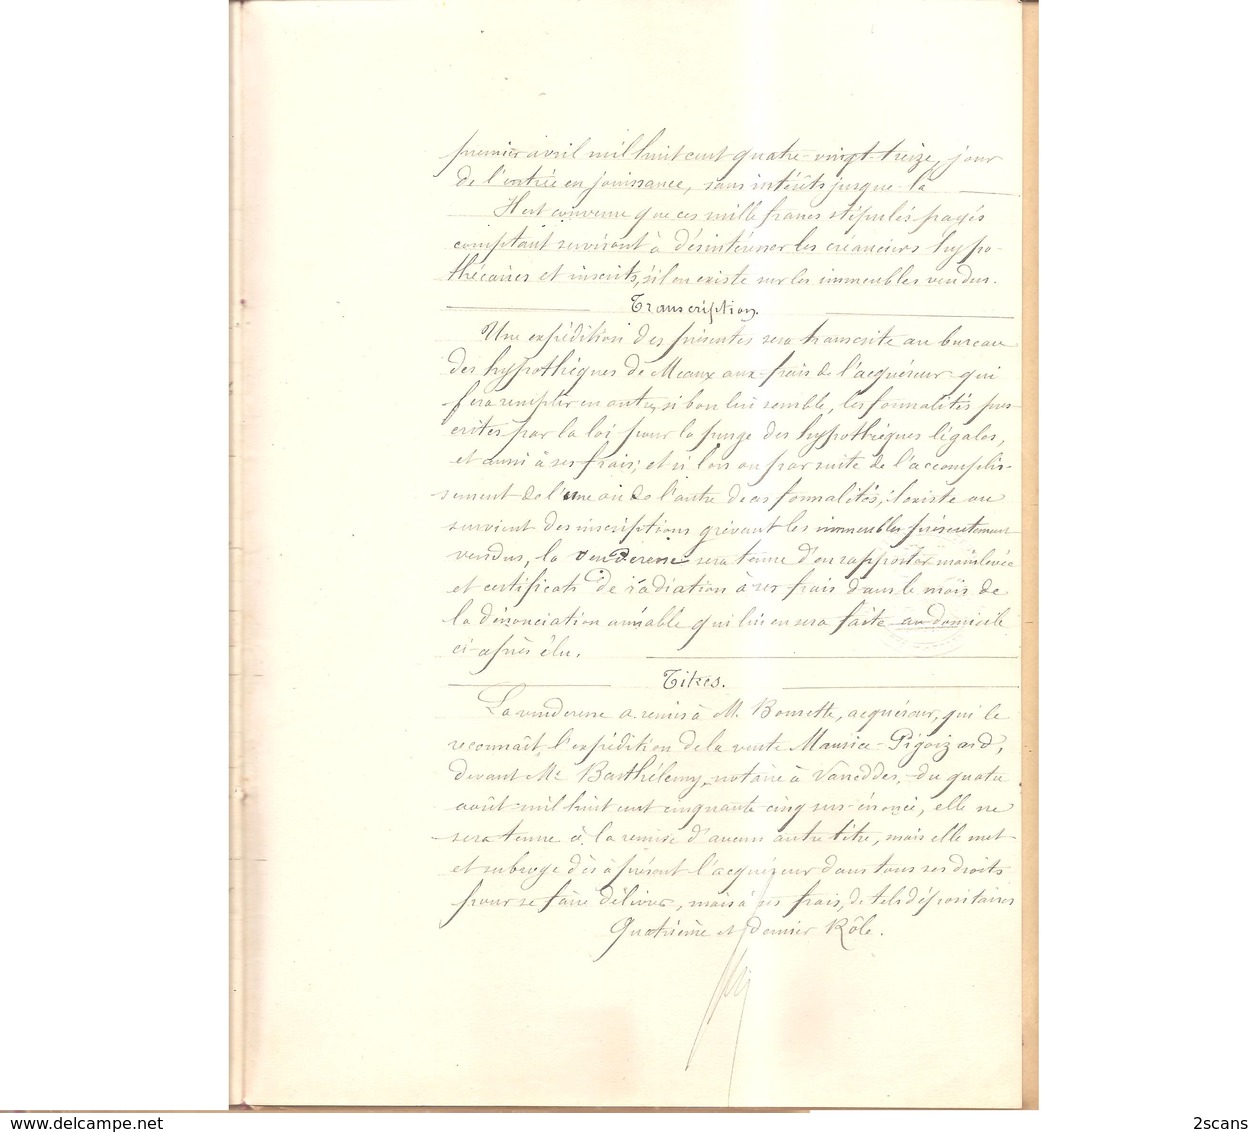 premier avril mil huit cent quatre-vingt-treize, jour
de l'entrée en jouissance, sans intérêts jusque-là
Il est convenu que ces mille francs stipulés payés
comptant serviront à désintéresser les créanciers hypo-
thécaires et inscrits, s'il en existe sur les immeubles vendus.
Transcription.
Une expédition des présentes sera transcrite au bureau
des hypothèques de Meaux aux frais de l'acquéreur qui
fera remplir en outre, si bon lui semble, les formalités pres-
crites par la loi pour la purge des hypothèques légales,
et aussi à ses frais; et si lors ou par suite de l'accomplis-
sement de l'une ou de l'autre de ces formalités, il existe ou
survient des inscriptions grévant les immeubles présentement
vendus, la venderesse sera tenue d'en rapporter mainlevée
et certificats de radiation à ses frais dans le mois de
la dénonciation amiable qui lui en sera faite au domicile
ci-après élu.
Titres.
La venderesse a remis à M. Bourette, acquéreur, qui le
reconnaît, l'expédition de la vente Maurice-Pigoizard,
devant Me Barthélemy, notaire à Vareddes, du quatre
août mil huit cent cinquante cinq sus-énoncé, elle ne
sera tenue à la remise d'aucun autre titre, mais elle met
et subroge dès à présent l'acquéreur dans tous ses droits
pour se faire délivrer, mais à ses frais, de tels dépositaires
Quatrième et dernier Rôle.
delcampe.net
2scans